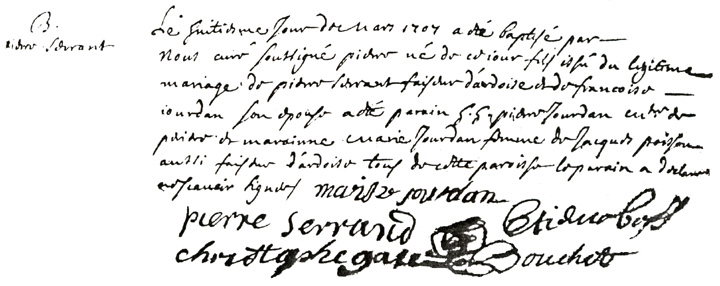 B.
pierre Serrant
Le huitiesme Jour de Mars 1707 a été baptisé par
Nous curé soussigné pierre né de ce jour fils issü du legitime
mariage de pierre Serrant faiseur d'ardoise et de francoise
iourdan son epouse a été parain pierre Jourdan
de marainne Marie Jourdan femme de Jacques poisson
aussi faiseur d'ardoise tous de cette paroisse le parain a declaré
ne scavoir signer marie jourdan
pierre Serrand
christophe Bouchet